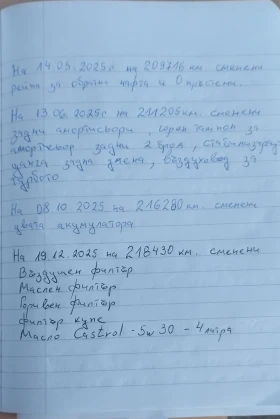 На 14.05.2025г на 209716 км. сменени
рейка за обратни нафта и О пръстени.
На 13.06.2025г на 211205 км. сменени
задни амортисьори, горен тампон за
амортисьор задни 2 броя, стабилизираща
щанга задна смяна, въздуховод за
турбото
На 08.10.2025 на 216280 км. сменени
двата акумулатора
На 19.12.2025 на 218430 км. сменени
Въздушен филтър
Маслен филтър
Горивен филтър
Филтър купе
Масло Castrol - 5w30 - 4 литра